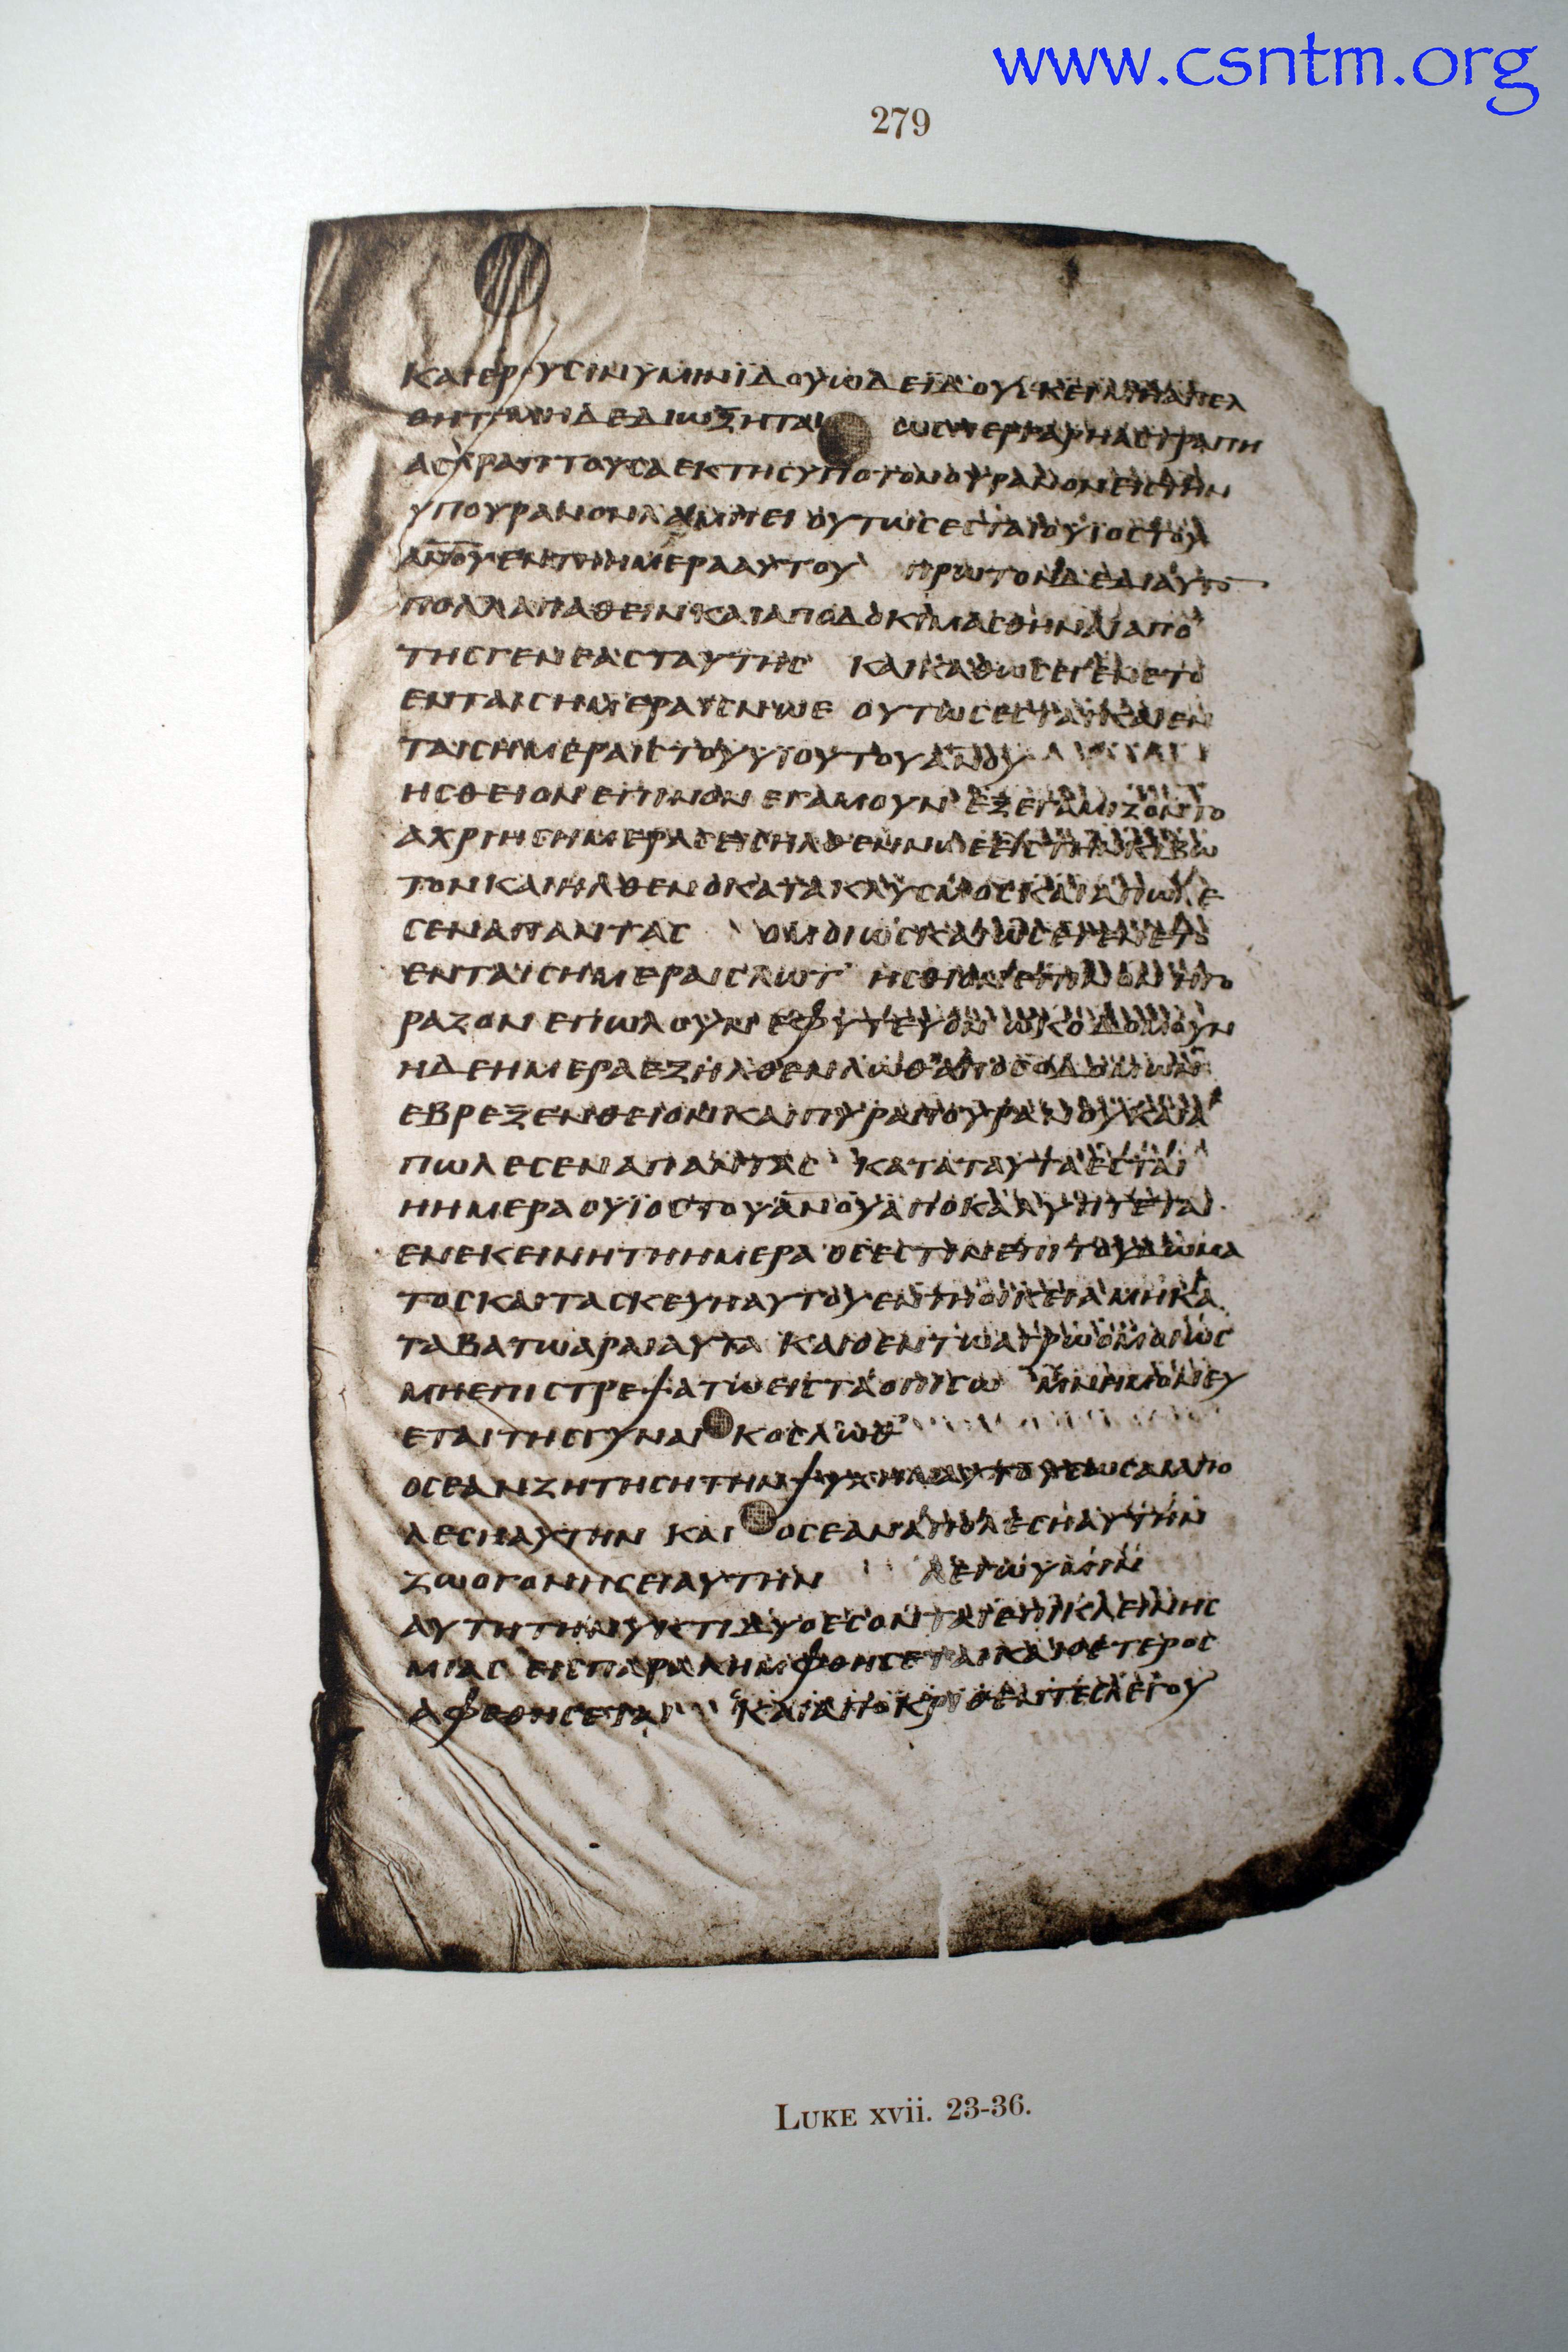 www.csntm.org
279
ΚΑΙΕΡΟΥϹΙΝΥΜΙΝΪΔΟΥΩΔΕΪΔΟΥΕΚΕΙΜΗΑΠΕΛ
ΘΗΤΑΙΜΗΔΕΔΙΩΞΗΤΑΙ ΩϹΠΕΡΓΑΡΗΑϹΤΡΑΠΗ
ΑϹΤΡΑΠΤΟΥϹΑΕΚΤΗϹΥΠΟΤΟΝΟΥΡΑΝΟΝΕΙϹΤΗΝ
ΥΠΟΥΡΑΝΟΝΛΑΜΠΕΙ ΟΥΤΩϹΕϹΤΑΙΟΥΙΟϹΤΟΥ
ΑΝΟΥΕΝΤΗΗΜΕΡΑΑΥΤΟΥ ΠΡΩΤΟΝΔΕΔΙΑΥΤΟ
ΠΟΛΛΑΠΑΘΕΙΝΚΑΙΑΠΟΔΟΚΙΜΑϹΘΗΝΑΙΑΠΟ
ΤΗϹΓΕΝΕΑϹΤΑΥΤΗϹ ΚΑΙΚΑΘΩϹΕΓΕΝΕΤΟ
ΕΝΤΑΙϹΗΜΕΡΑΙϹΝΩΕ ΟΥΤΩϹΕϹΤΑΙΚΑΙΕΝ
ΤΑΙϹΗΜΕΡΑΙϹΤΟΥΥΙΟΥΤΟΥΑΝΟΥ
ΗϹΘΕΙΟΝΕΠΙΝΟΝ ΕΓΑΜΟΥΝ ΕΞΕΓΑΜΙΖΟΝΤΟ
ΑΧΡΙΗϹΗΜΕΡΑϹΕΙϹΗΛΘΕΝΝΩΕΕΙϹΤΗΝΚΙΒΩ
ΤΟΝΚΑΙΗΛΘΕΝΟΚΑΤΑΚΛΥϹΜΟϹΚΑΙΑΠΩΛΕ
ϹΕΝΑΠΑΝΤΑϹ ΟΜΟΙΩϹΚΑΙΩϹΕΓΕΝΕΤΟ
ΕΝΤΑΙϹΗΜΕΡΑΙϹΛΩΤ ΗϹΘΙΟΝΕΠΙΝΟΝΗΓΟ
ΡΑΖΟΝΕΠΩΛΟΥΝΕΦΥΤΕΥΟΝ ΩΚΟΔΟΜΟΥΝ
ΗΔΕΗΜΕΡΑΕΞΗΛΘΕΝΛΩΘΑΠΟϹΟΔΟΜΩΝ
ΕΒΡΕΞΕΝΘΕΙΟΝΚΑΙΠΥΡΑΠΟΥΡΑΝΟΥΚΑΙΑ
ΠΩΛΕϹΕΝΑΠΑΝΤΑϹ ΚΑΤΑΤΑΥΤΑΕϹΤΑΙ
ΗΗΜΕΡΑΟΥΪΟϹΤΟΥΑΝΟΥΑΠΟΚΑΛΥΠΤΕΤΑΙ
ΕΝΕΚΕΙΝΗΤΗΗΜΕΡΑ ΟϹΕϹΤΙΝΕΠΙΤΟΥΔΩΜΑ
ΤΟϹΚΑΙΤΑϹΚΕΥΗΑΥΤΟΥΕΝΤΗΟΙΚΕΙΑΜΗΚΑ
ΤΑΒΑΤΩΑΡΑΙΑΥΤΑ ΚΑΙΟΕΝΤΩΑΓΡΩΟΜΟΙΩϹ
ΜΗΕΠΙϹΤΡΕΨΑΤΩΕΙϹΤΑΟΠΙϹΩ ΜΝΗΜΟΝΕΥ
ΕΤΑΙΤΗϹΓΥΝΑΙΚΟϹΛΩΘ
ΟϹΕΑΝΖΗΤΗϹΗΤΗΝΨΥΧΗΝΑΥΤΟΥϹΩϹΑΙΑΠΟ
ΛΕϹΗΑΥΤΗΝ ΚΑΙ ΟϹΕΑΝΑΠΟΛΕϹΗΑΥΤΗΝ
ΖΩΟΓΟΝΗϹΕΙΑΥΤΗΝ ΛΕΓΩΥΜΙΝ
ΑΥΤΗΤΗΝΥΚΤΙΔΥΟΕϹΟΝΤΑΙΕΠΙΚΛΕΙΝΗϹ
ΜΙΑϹ ΕΙϹΠΑΡΑΛΗΜΦΘΗϹΕΤΑΙΚΑΙΟΕΤΕΡΟϹ
ΑΦΕΘΗϹΕΤΑΙ ΚΑΙΑΠΟΚΡΙΘΕΝΤΕϹΛΕΓΟΥ
LUKE xvii. 23-36.